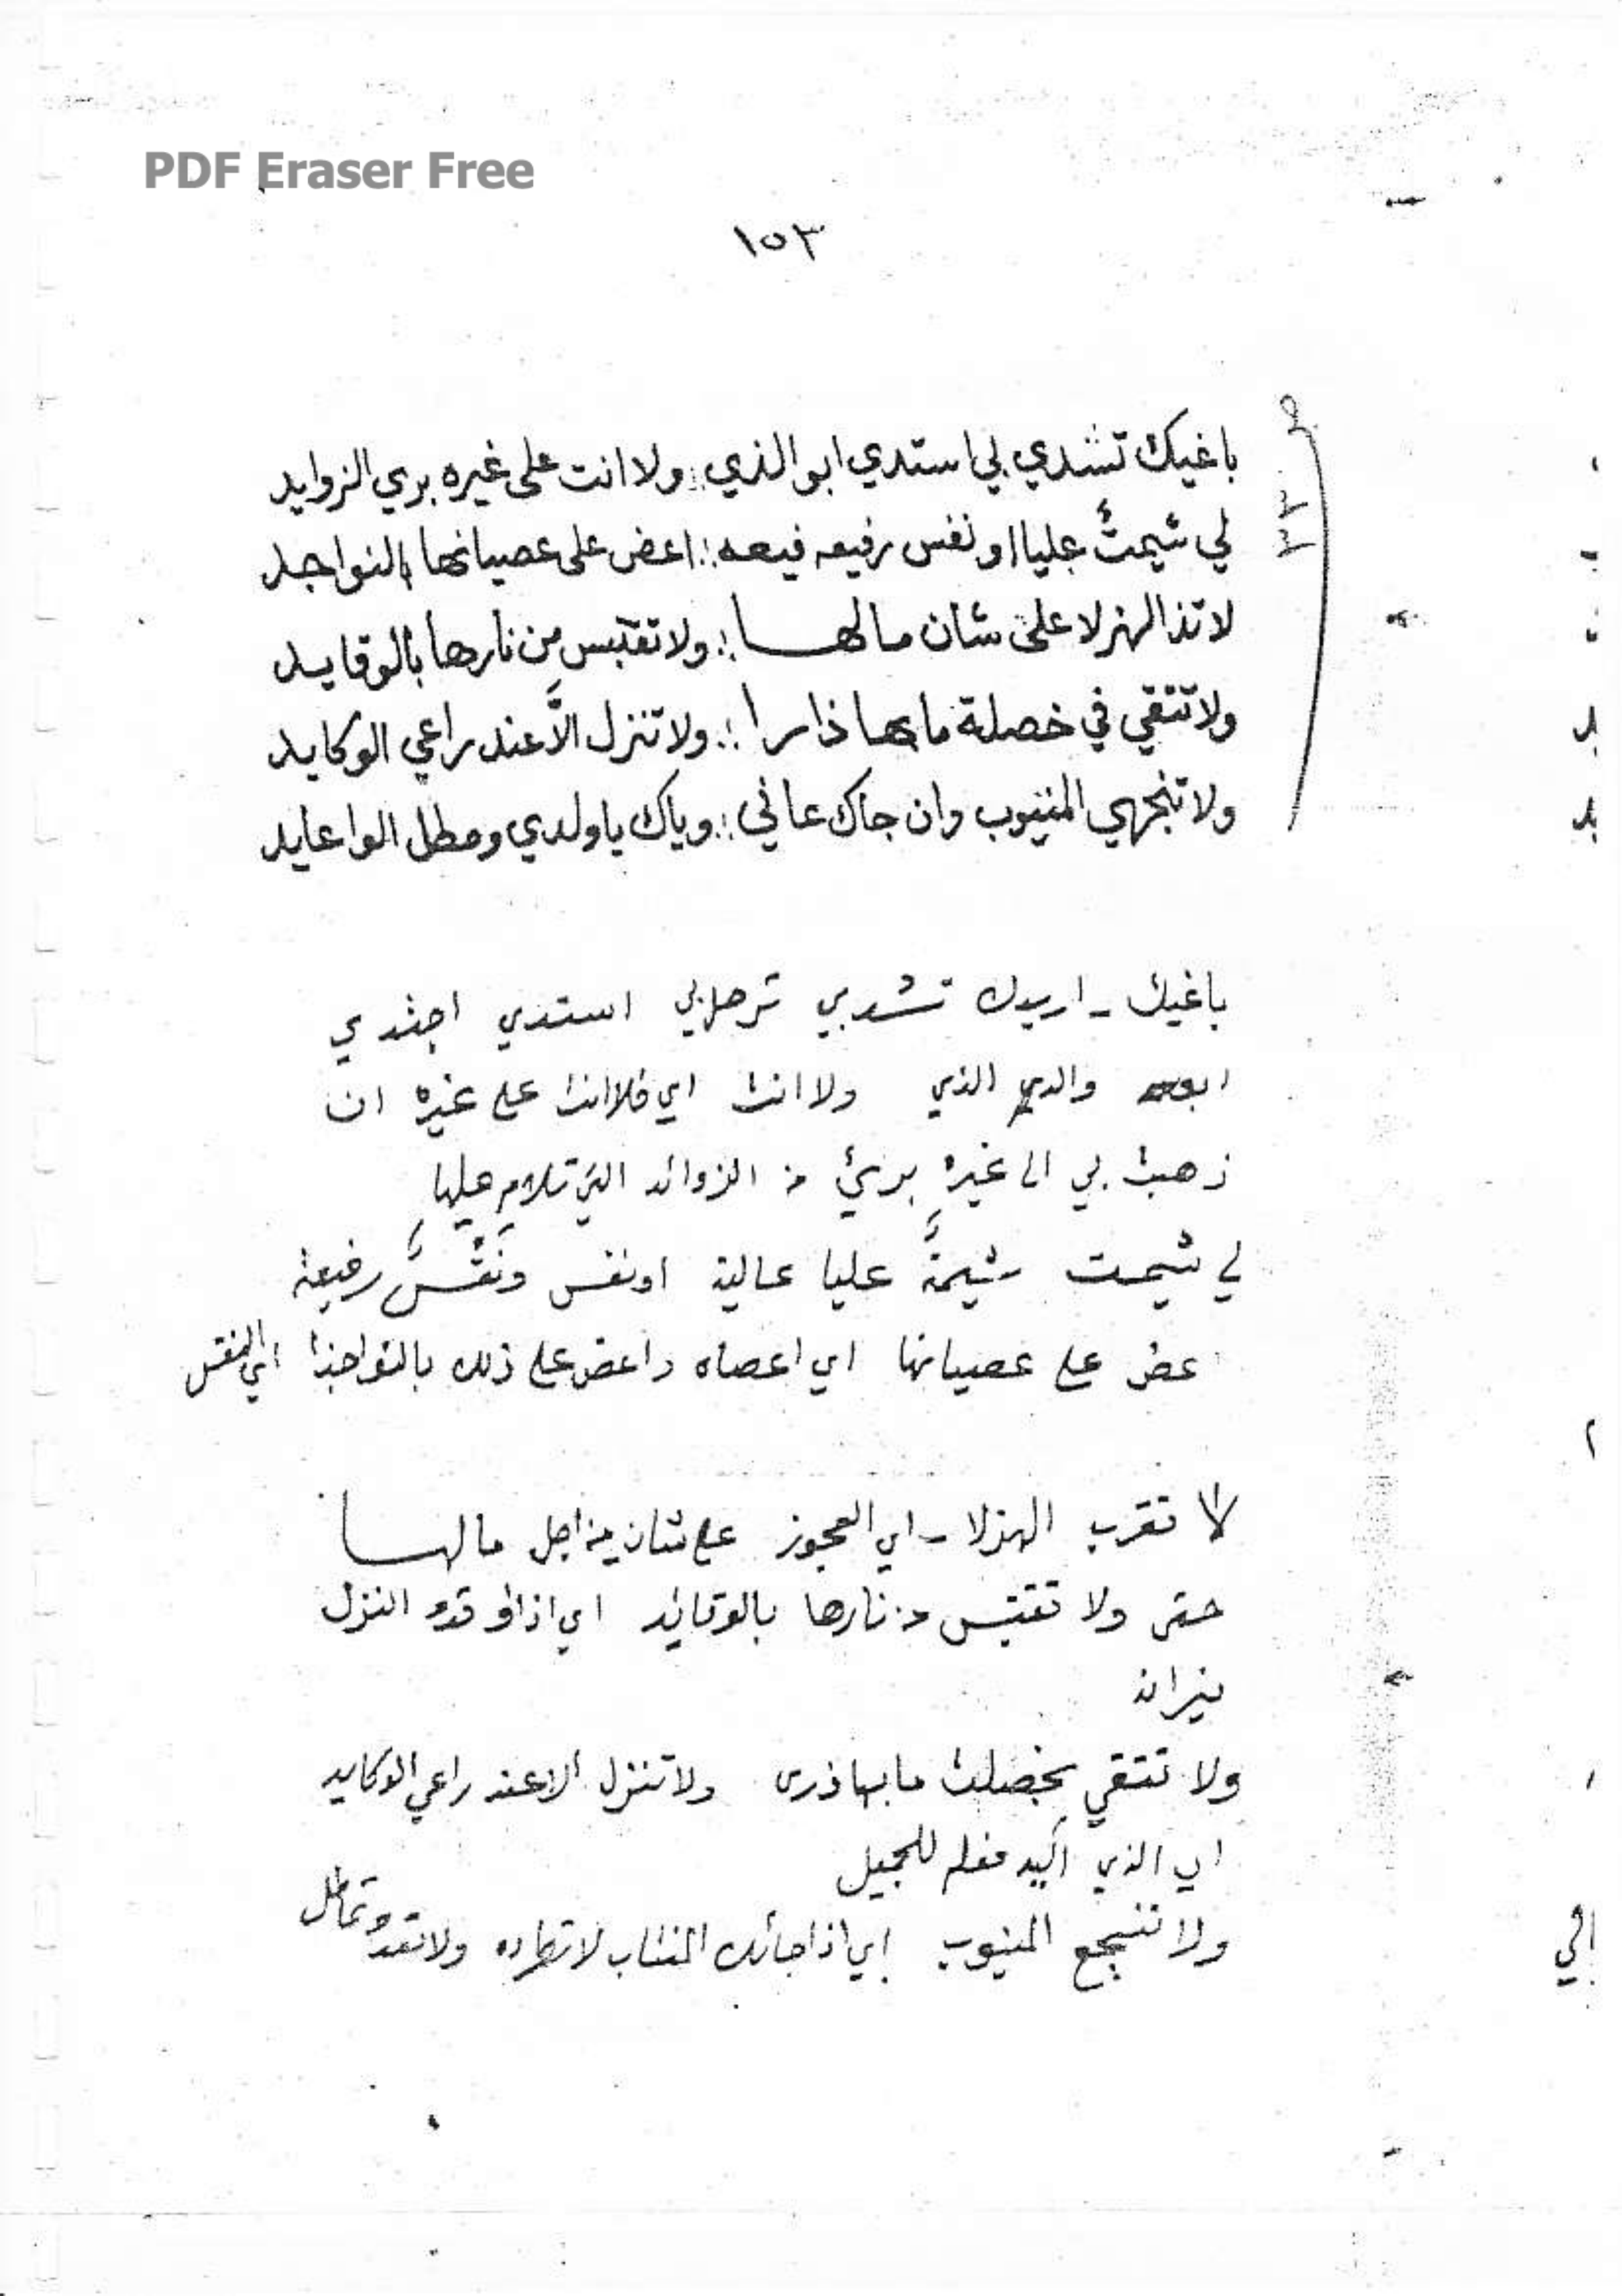 PDF Eraser Free
١٥٣
باغيك تشدي لي استدي ابو الذي :. ولا انت على غيره بري الزوايد
لي شيمتً عليا او نفس رفيعه فيعه :. اعض على عصيانها بالنواجد
لا تذ الهزلا على شان مالها :. ولا تقتبس من نارها بالوقايد
ولا تتقي في خصلة مابها ذارا :. ولا تنزل الاَّ عند راعي الوكايد
ولا تنجهي المنيوب وان جاك عاني :. وياك ياولدي ومطل الواعايد
باغيك - اريدك تشدبي ترحل بي استدي اجتدي
ابوي والدي الذي ولا انت اي فلا انت على غيره ان
ذهبت بي الى غيره بريئ من الزوائد التي تلام عليها
لي شيمت شيمةً عليا عالية اونفس ونفسٌ رفيعة
عض على عصيانها اي اعصاه واعض على ذلك بالنواجذ اي النفس
لا تقرب الهزلا - اي العجوز على شان من اجل مالها
حتى ولا تقتبس من نارها بالوقائد اي اذا قد النزل
نيرانه
ولا تتقي بخصلت مابها ذرى ولا تنزل الا عند راعي الوكايد
اي الذي اكيد فعله للجميل
ولا تنجع المنيوب اي اذا جائك المنتاب لا تطرده ولا تعد وتماطل
الي